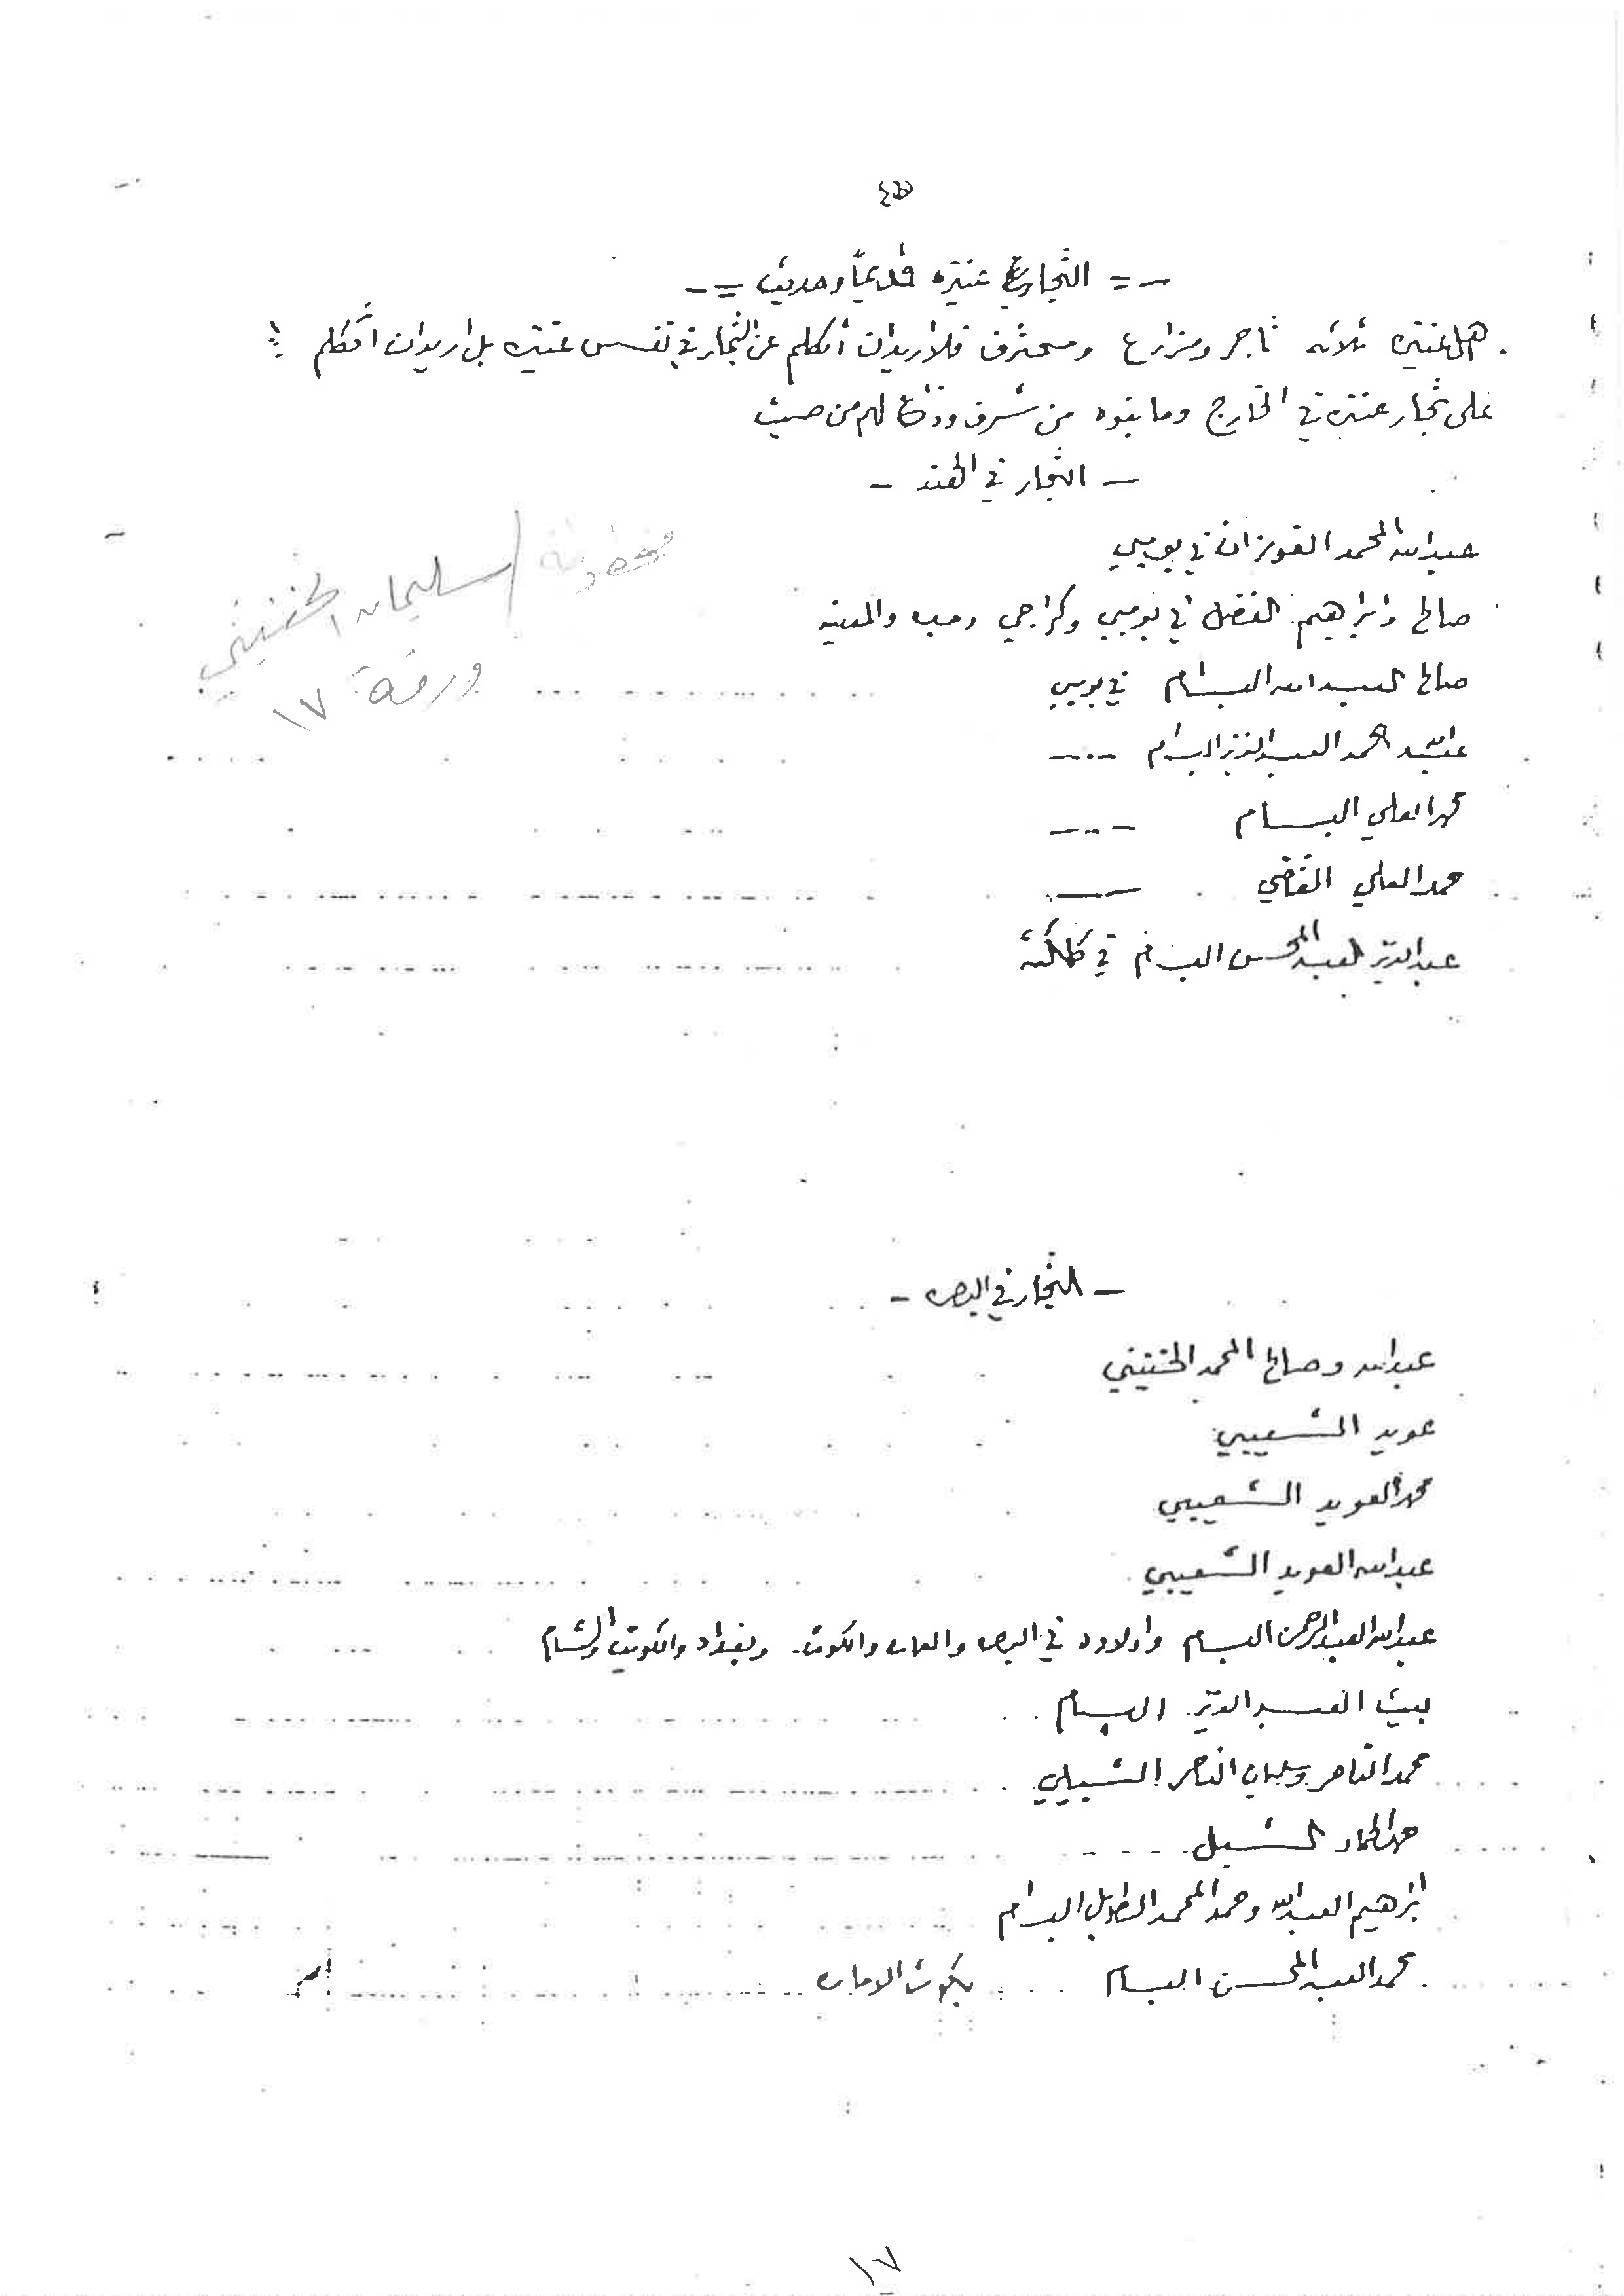 -= التجار في عنيزه قديماً وحديث =-
هل عنيزه ثلاثه تاجر ومزارع ومحترف فلا اريد ان أتكلم عن التجار في نفس عنيزه بل اريد ان أتكلم
على تجار عنيزه في الخارج وما بنوه من شرف لهم من صيت
- التجار في الهند -
عبدالله المحمد الفوزان في بومبي
صالح وابراهيم الفضل في بومبي وكراجي
صالح العبدالله البسام في بومبي
عبدالله الحمد العبدالعزيز البسام
محمد العلي البسام
حمد العلي القاضي
عبدالعزيز العبدالمحسن البسام في كلكته
مخطوطة / سليمان الخنيني
ورقة: ١٧
- التجار في البصره -
عبدالله وصالح المحمد الخنيني
عويد الشعيبي
محمد العويد الشعيبي
عبدالله العويد الشعيبي
عبدالله العبدالرحمن البسام واولاده في البصره والعماره والكوت وبغداد والكويت والشام
بيت العبدالعزيز البسام
محمد الناصر وسليمان الناصر الشبيلي
حمد الحماد الشبل
ابرهيم العبدالله وحمد المحمد الطويل البسام
محمد العبدالمحسن البسام بكوت الاماره
١٧